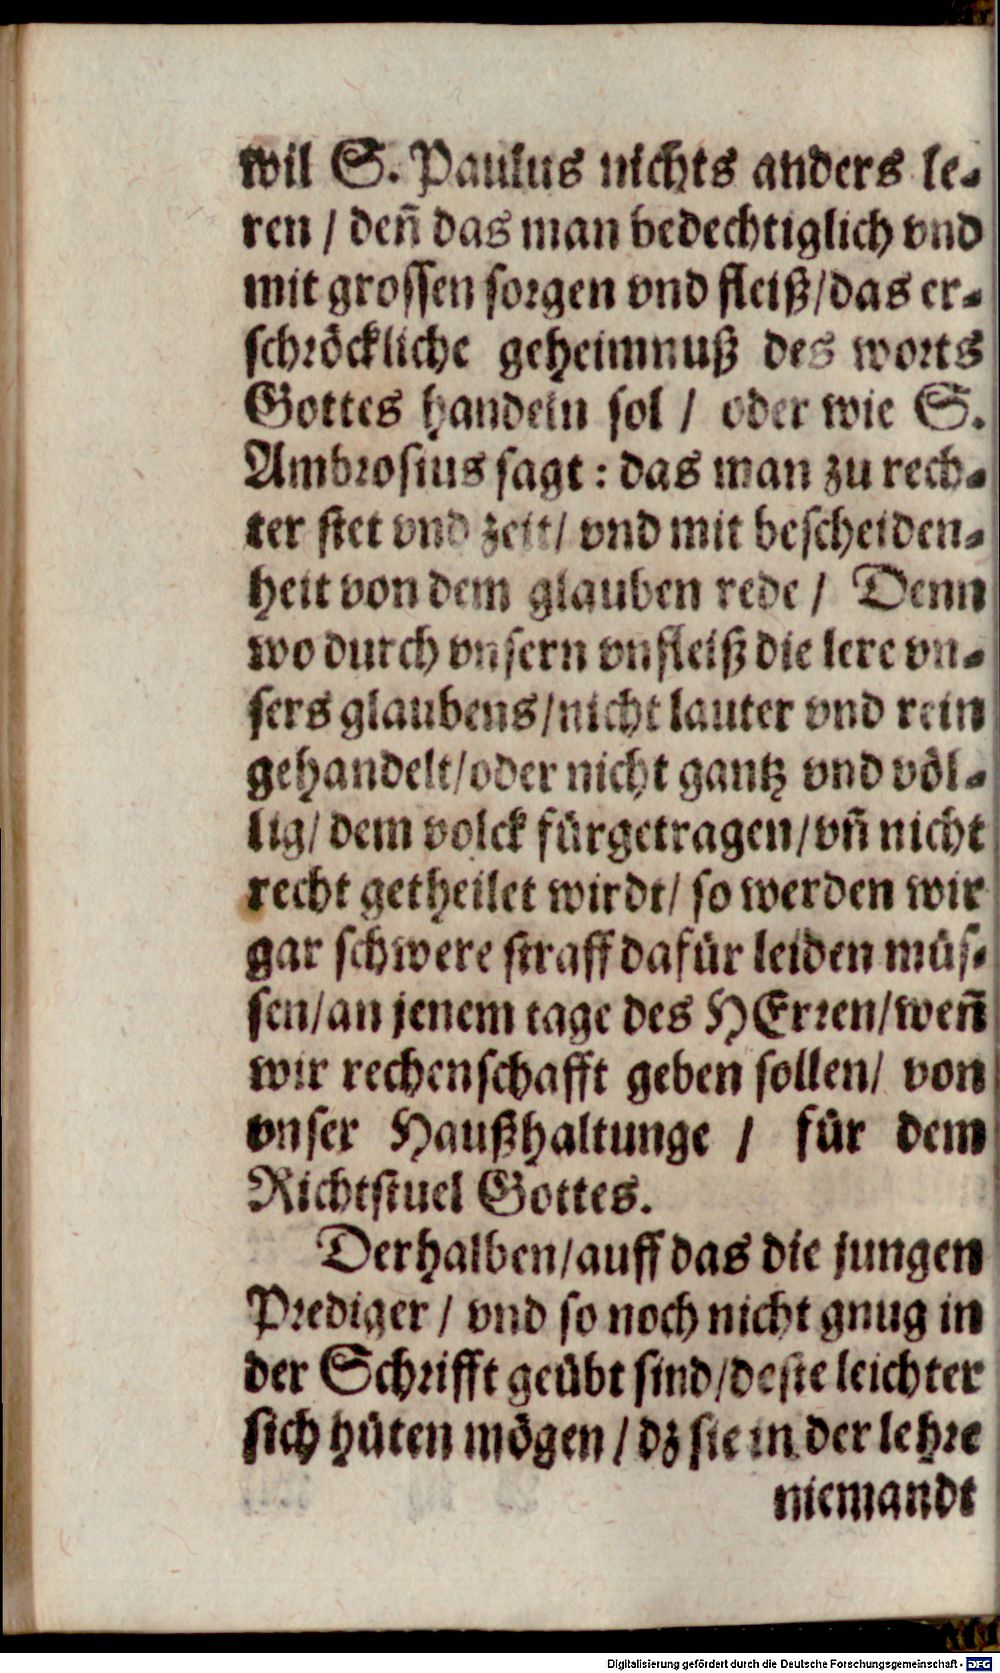 wil S. Paulus nichts anders le-
ren / deñ das man bedechtiglich vnd
mit grossen sorgen vnd fleiß/das er-
schröckliche geheimnuß des worts
Gottes handeln sol / oder wie S.
Ambrosius sagt : das man zu rech-
ter stet vnd zeit/ vnd mit bescheiden-
heit von dem glauben rede / Denn
wo durch vnsern vnfleiß die lere vn-
sers glaubens/nicht lauter vnd rein
gehandelt/oder nicht gantz vnd völ-
lig/ dem volck fürgetragen/vñ nicht
recht getheilet wirdt/ so werden wir
gar schwere straff dafür leiden müs-
sen/an jenem tage des HErren/weñ
wir rechenschafft geben sollen/ von
vnser Haußhaltunge / für dem
Richtstuel Gottes.
Derhalben/auff das die jungen
Prediger / vnd so noch nicht gnug in
der Schrifft geübt sind/deste leichter
sich hüten mögen / dz sie in der lehre
niemandt
Digitalisierung gefördert durch die Deutsche Forschungsgemeinschaft - DFG